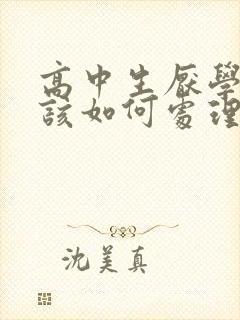 高中生厭學
該如何處理
沈美真